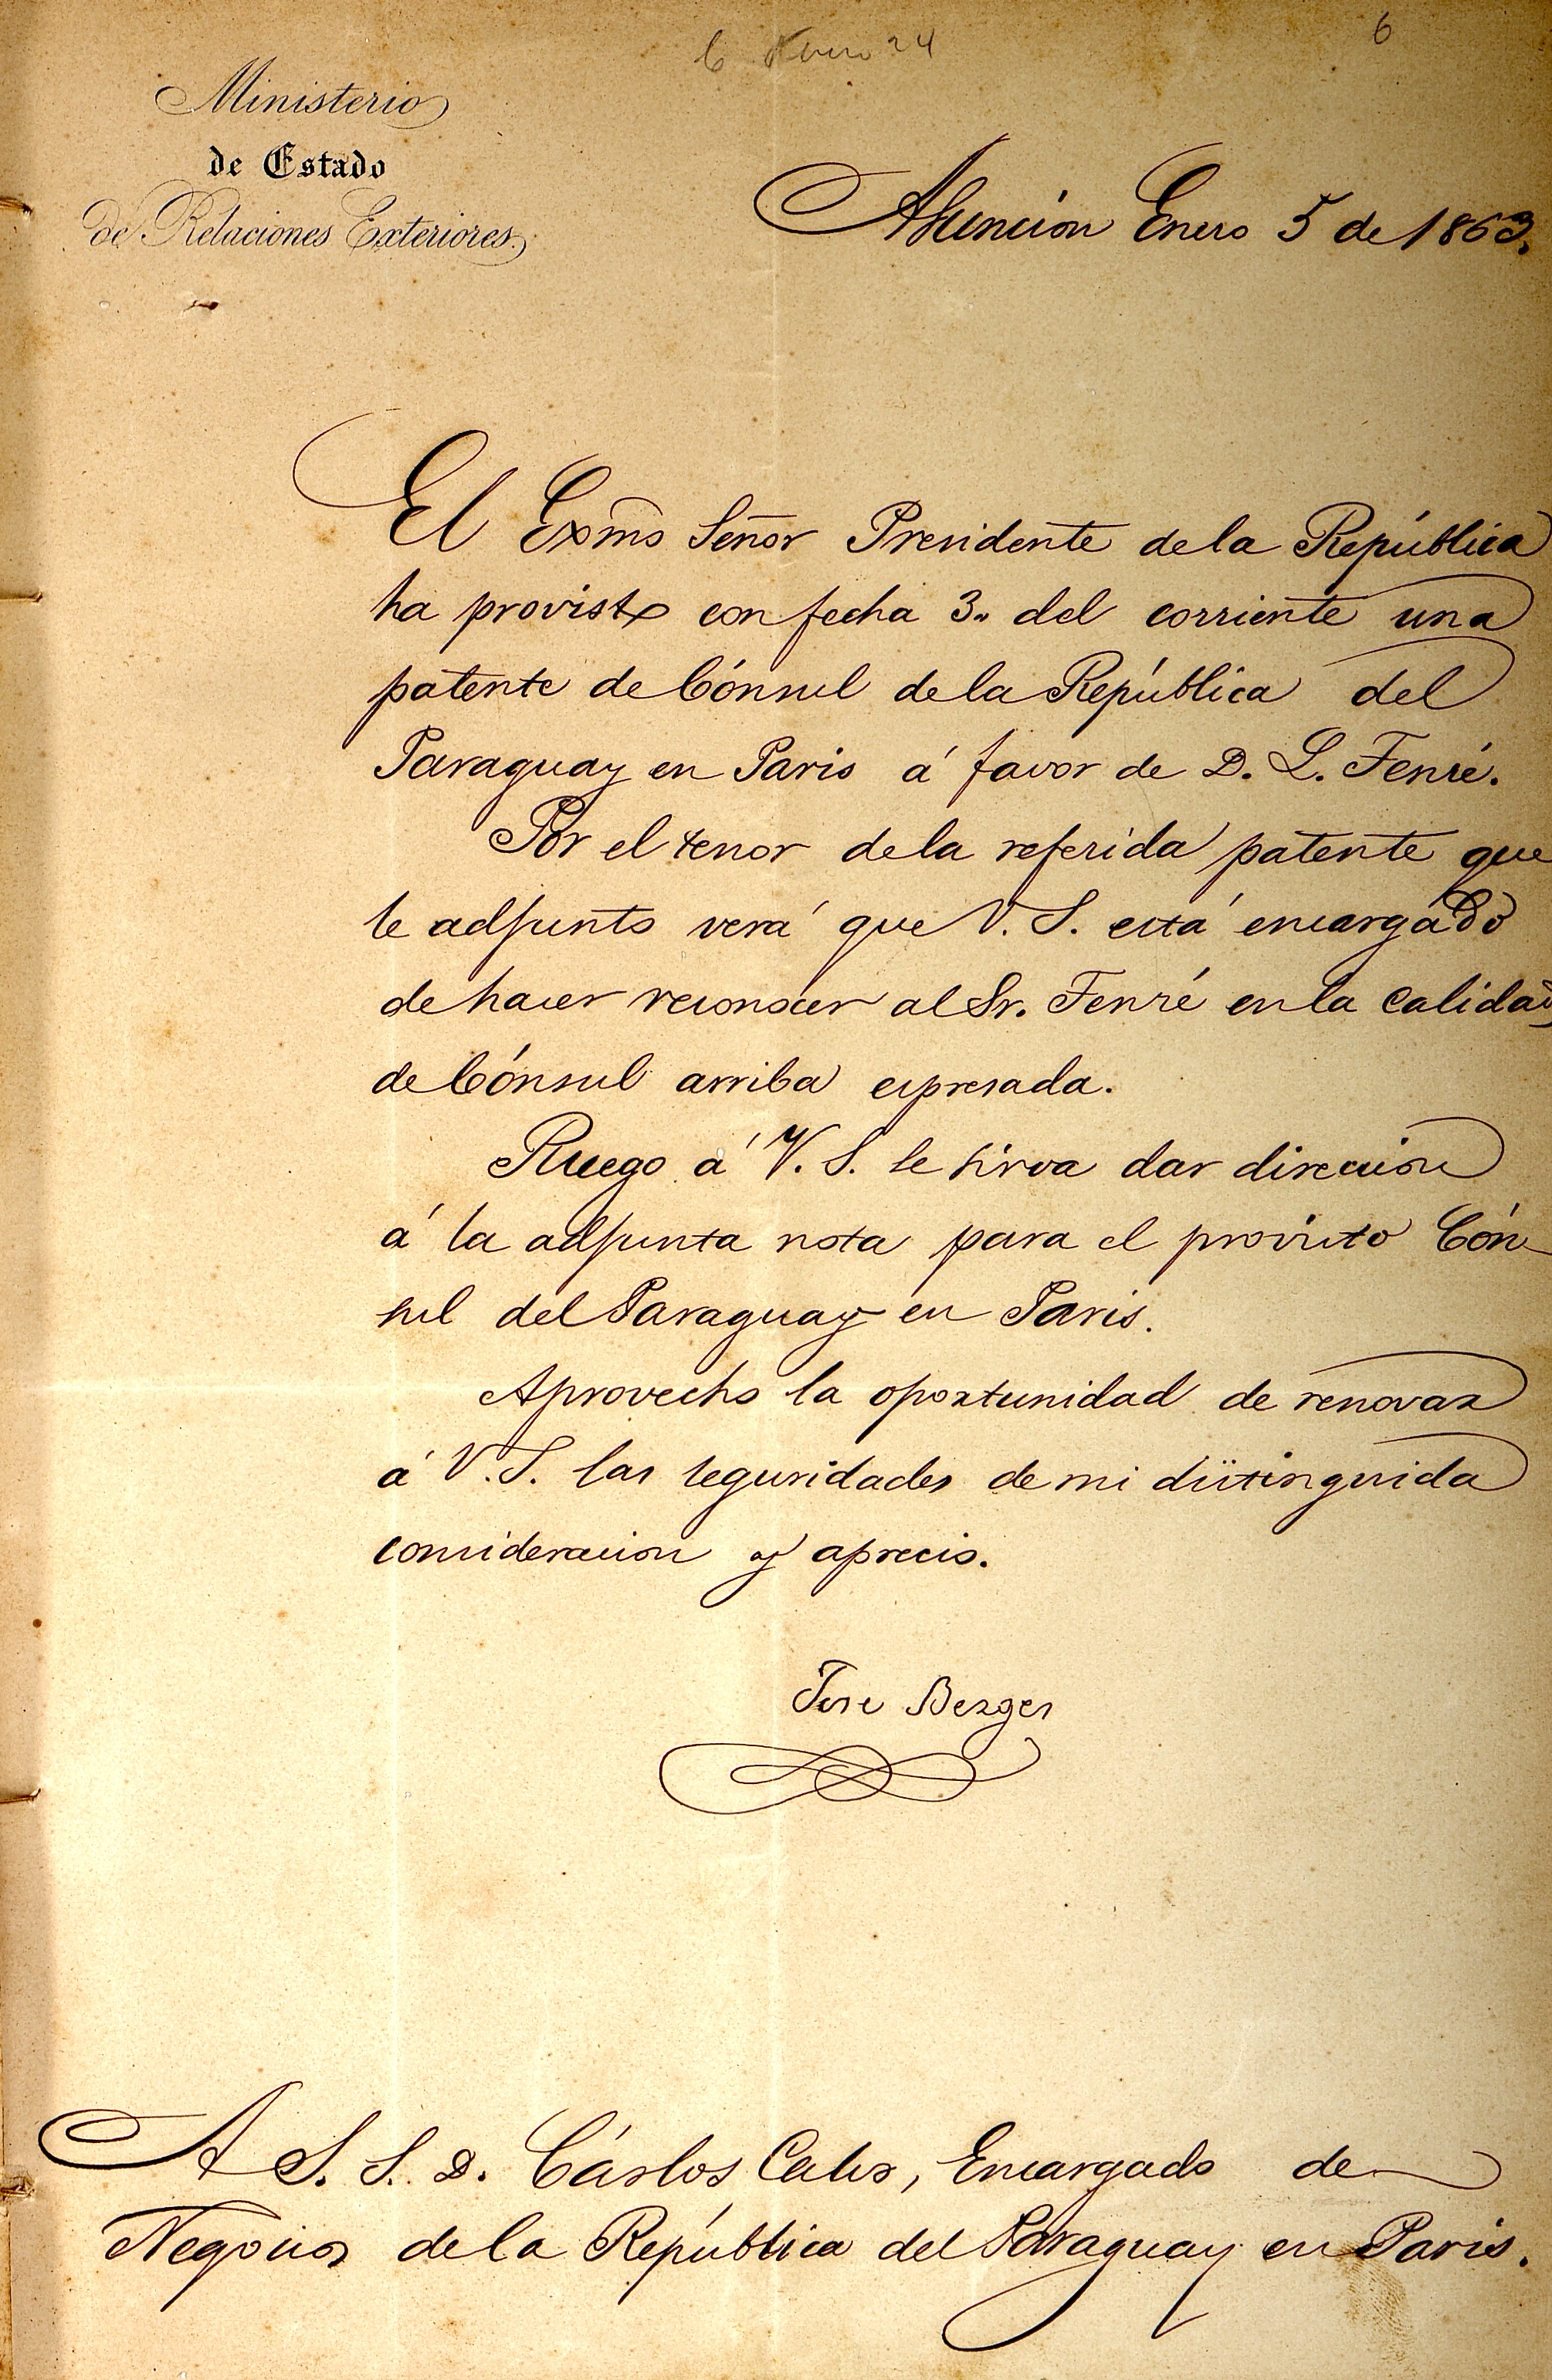 6 Enero 24
6
Ministerio
de Estado
de Relaciones Exteriores.
Asuncion Enero 5 de 1863.
El Exmo Señor Presidente de la República
ha provisto con fecha 3„ del corriente una
patente de Cónsul de la República del
Paraguay en Paris á favor de D. L. Fenré.
Por el tenor de la referida patente que
le adjunto verá que V. S. está encargado
de hacer reconocer al Sr. Fenré en la calidad
de Cónsul arriba espresada.
Ruego á V. S. se sirva dar direccion
á la adjunta nota para el provisto Cón-
sul del Paraguay en Paris.
Aprovecho la oportunidad de renovar
á V. S. las seguridades de mi distinguida
consideracion y aprecio.
Jose Berges
A S. S. D. Cárlos Calvo, Encargado de
Negocios de la República del Paraguay en Paris.